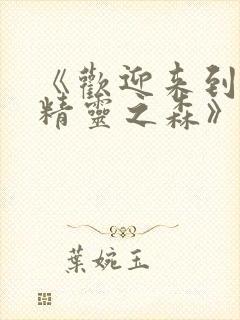 《歡迎来到
精靈之森》
葉婉玉